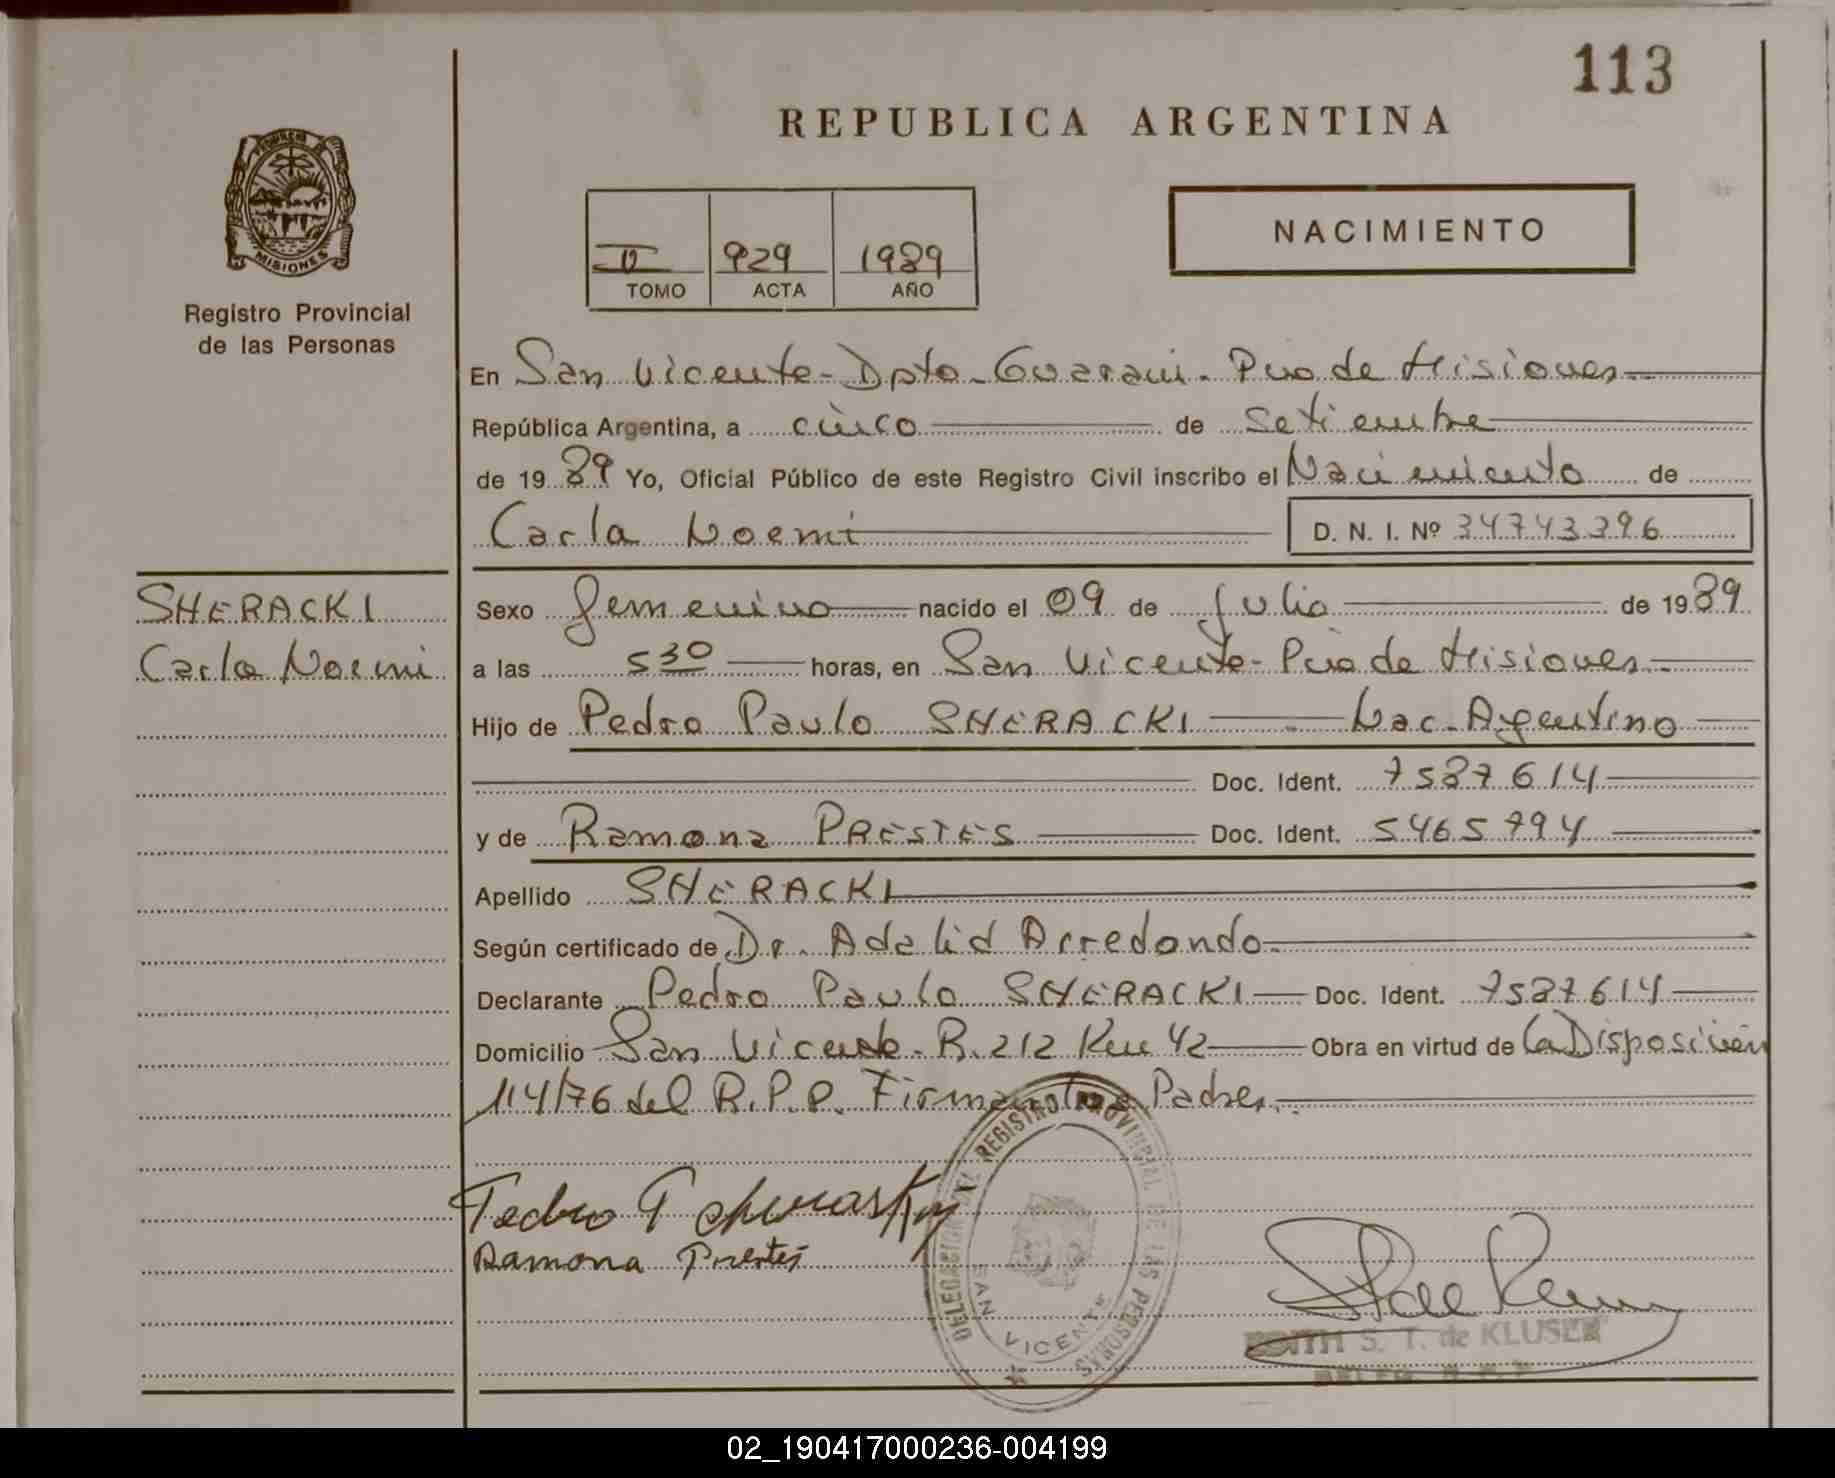 113
REPUBLICA ARGENTINA
PROVINCIA DE
MISIONES
Registro Provincial
de las Personas
NACIMIENTO
II 929 1989
TOMO ACTA AÑO
En San Vicente - Dpto - Guarani - Pcia de Misiones
República Argentina, a cinco de Setiembre
de 1989 Yo, Oficial Público de este Registro Civil inscribo el Nacimiento de
Carla Noemi D. N. I. Nº 34743396
SHERACKI
Carla Noemi
Sexo femenino nacido el 09 de Julio de 1989
a las 530 horas, en San Vicente - Pcia de Misiones
Hijo de Pedro Paulo SHERACKI Nac. Argentino
Doc. Ident. 7587614
y de Ramona PRESTES Doc. Ident. 5465794
Apellido SHERACKI
Según certificado de Dr. Adalid Arredondo
Declarante Pedro Paulo SHERACKI Doc. Ident. 7587614
Domicilio San Vicente - R. 212 Km 42 Obra en virtud de la Disposición
114/76 del R.P.P. Firman los Padres
DELEGACION REGISTRO PROVINCIAL DE LAS PERSONAS
SAN VICENTE
Pedro P
Ramona Prestes
EDITH S. T. de KLUSER
DELEG. R. P. P.
02_190417000236-004199